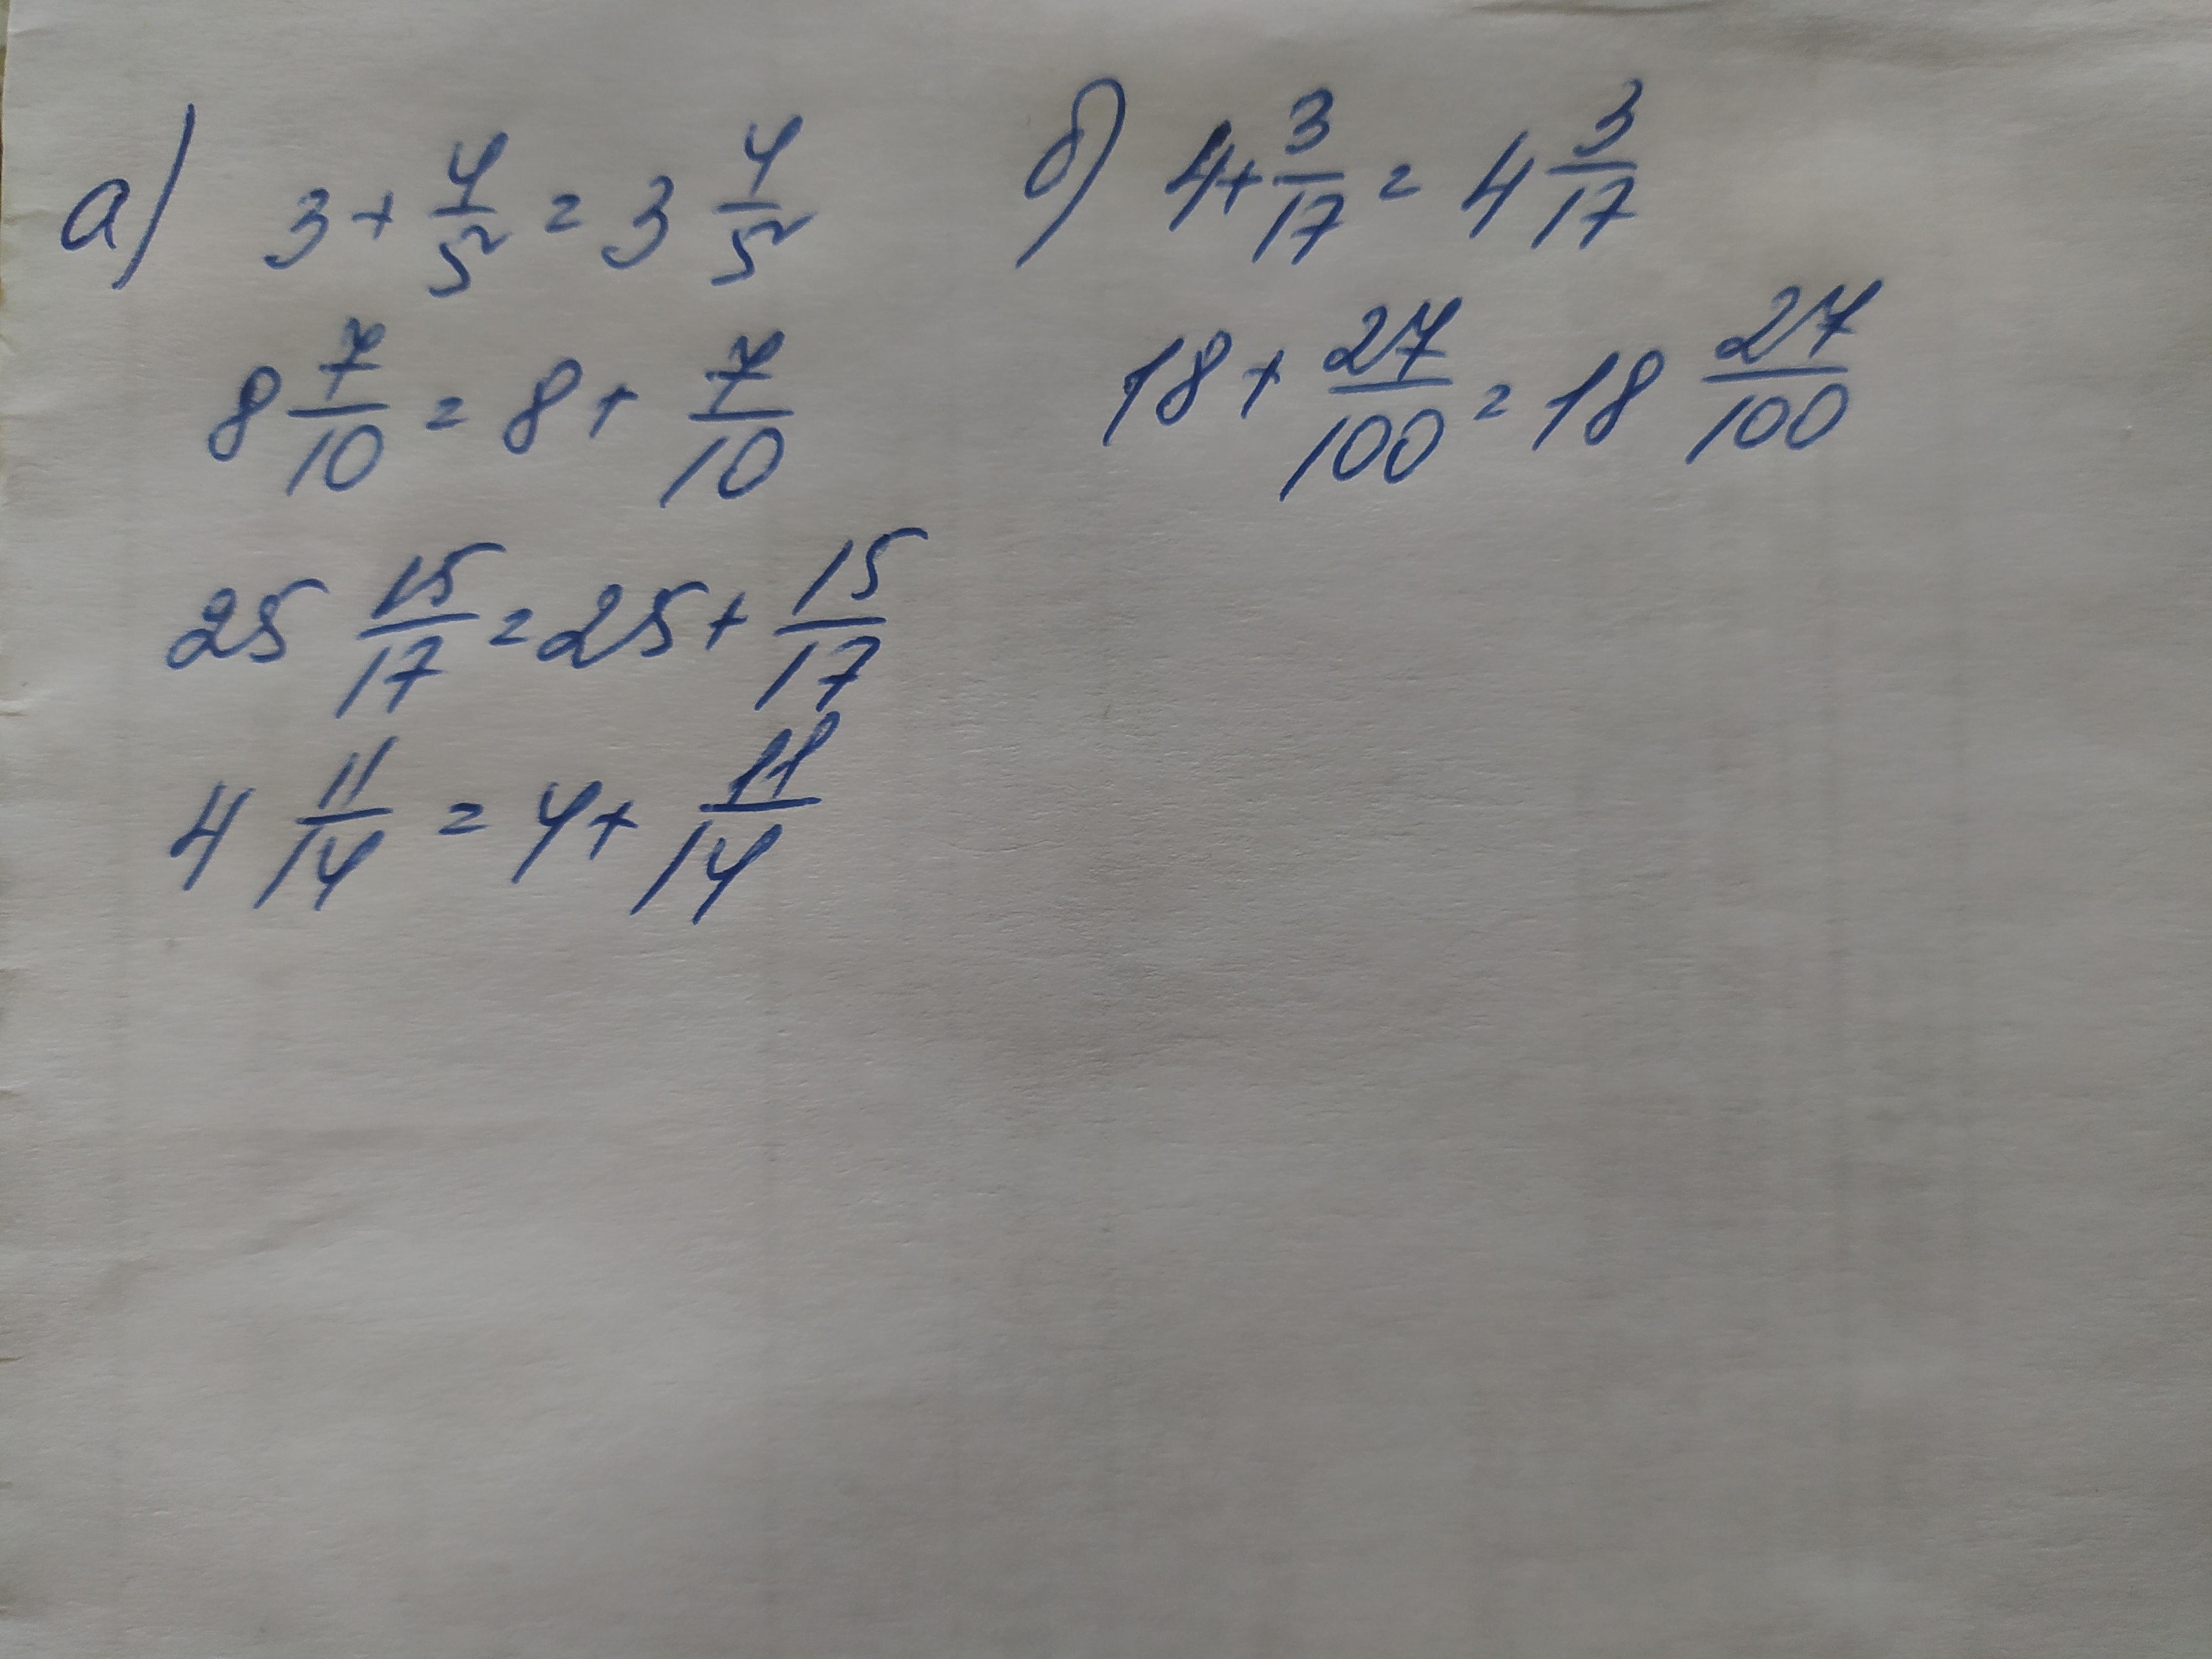 а) 3 + 4/5 = 3 4/5
8 7/10 = 8 + 7/10
25 15/17 = 25 + 15/17
4 11/14 = 4 + 11/14
б) 4 + 3/17 = 4 3/17
18 + 27/100 = 18 27/100